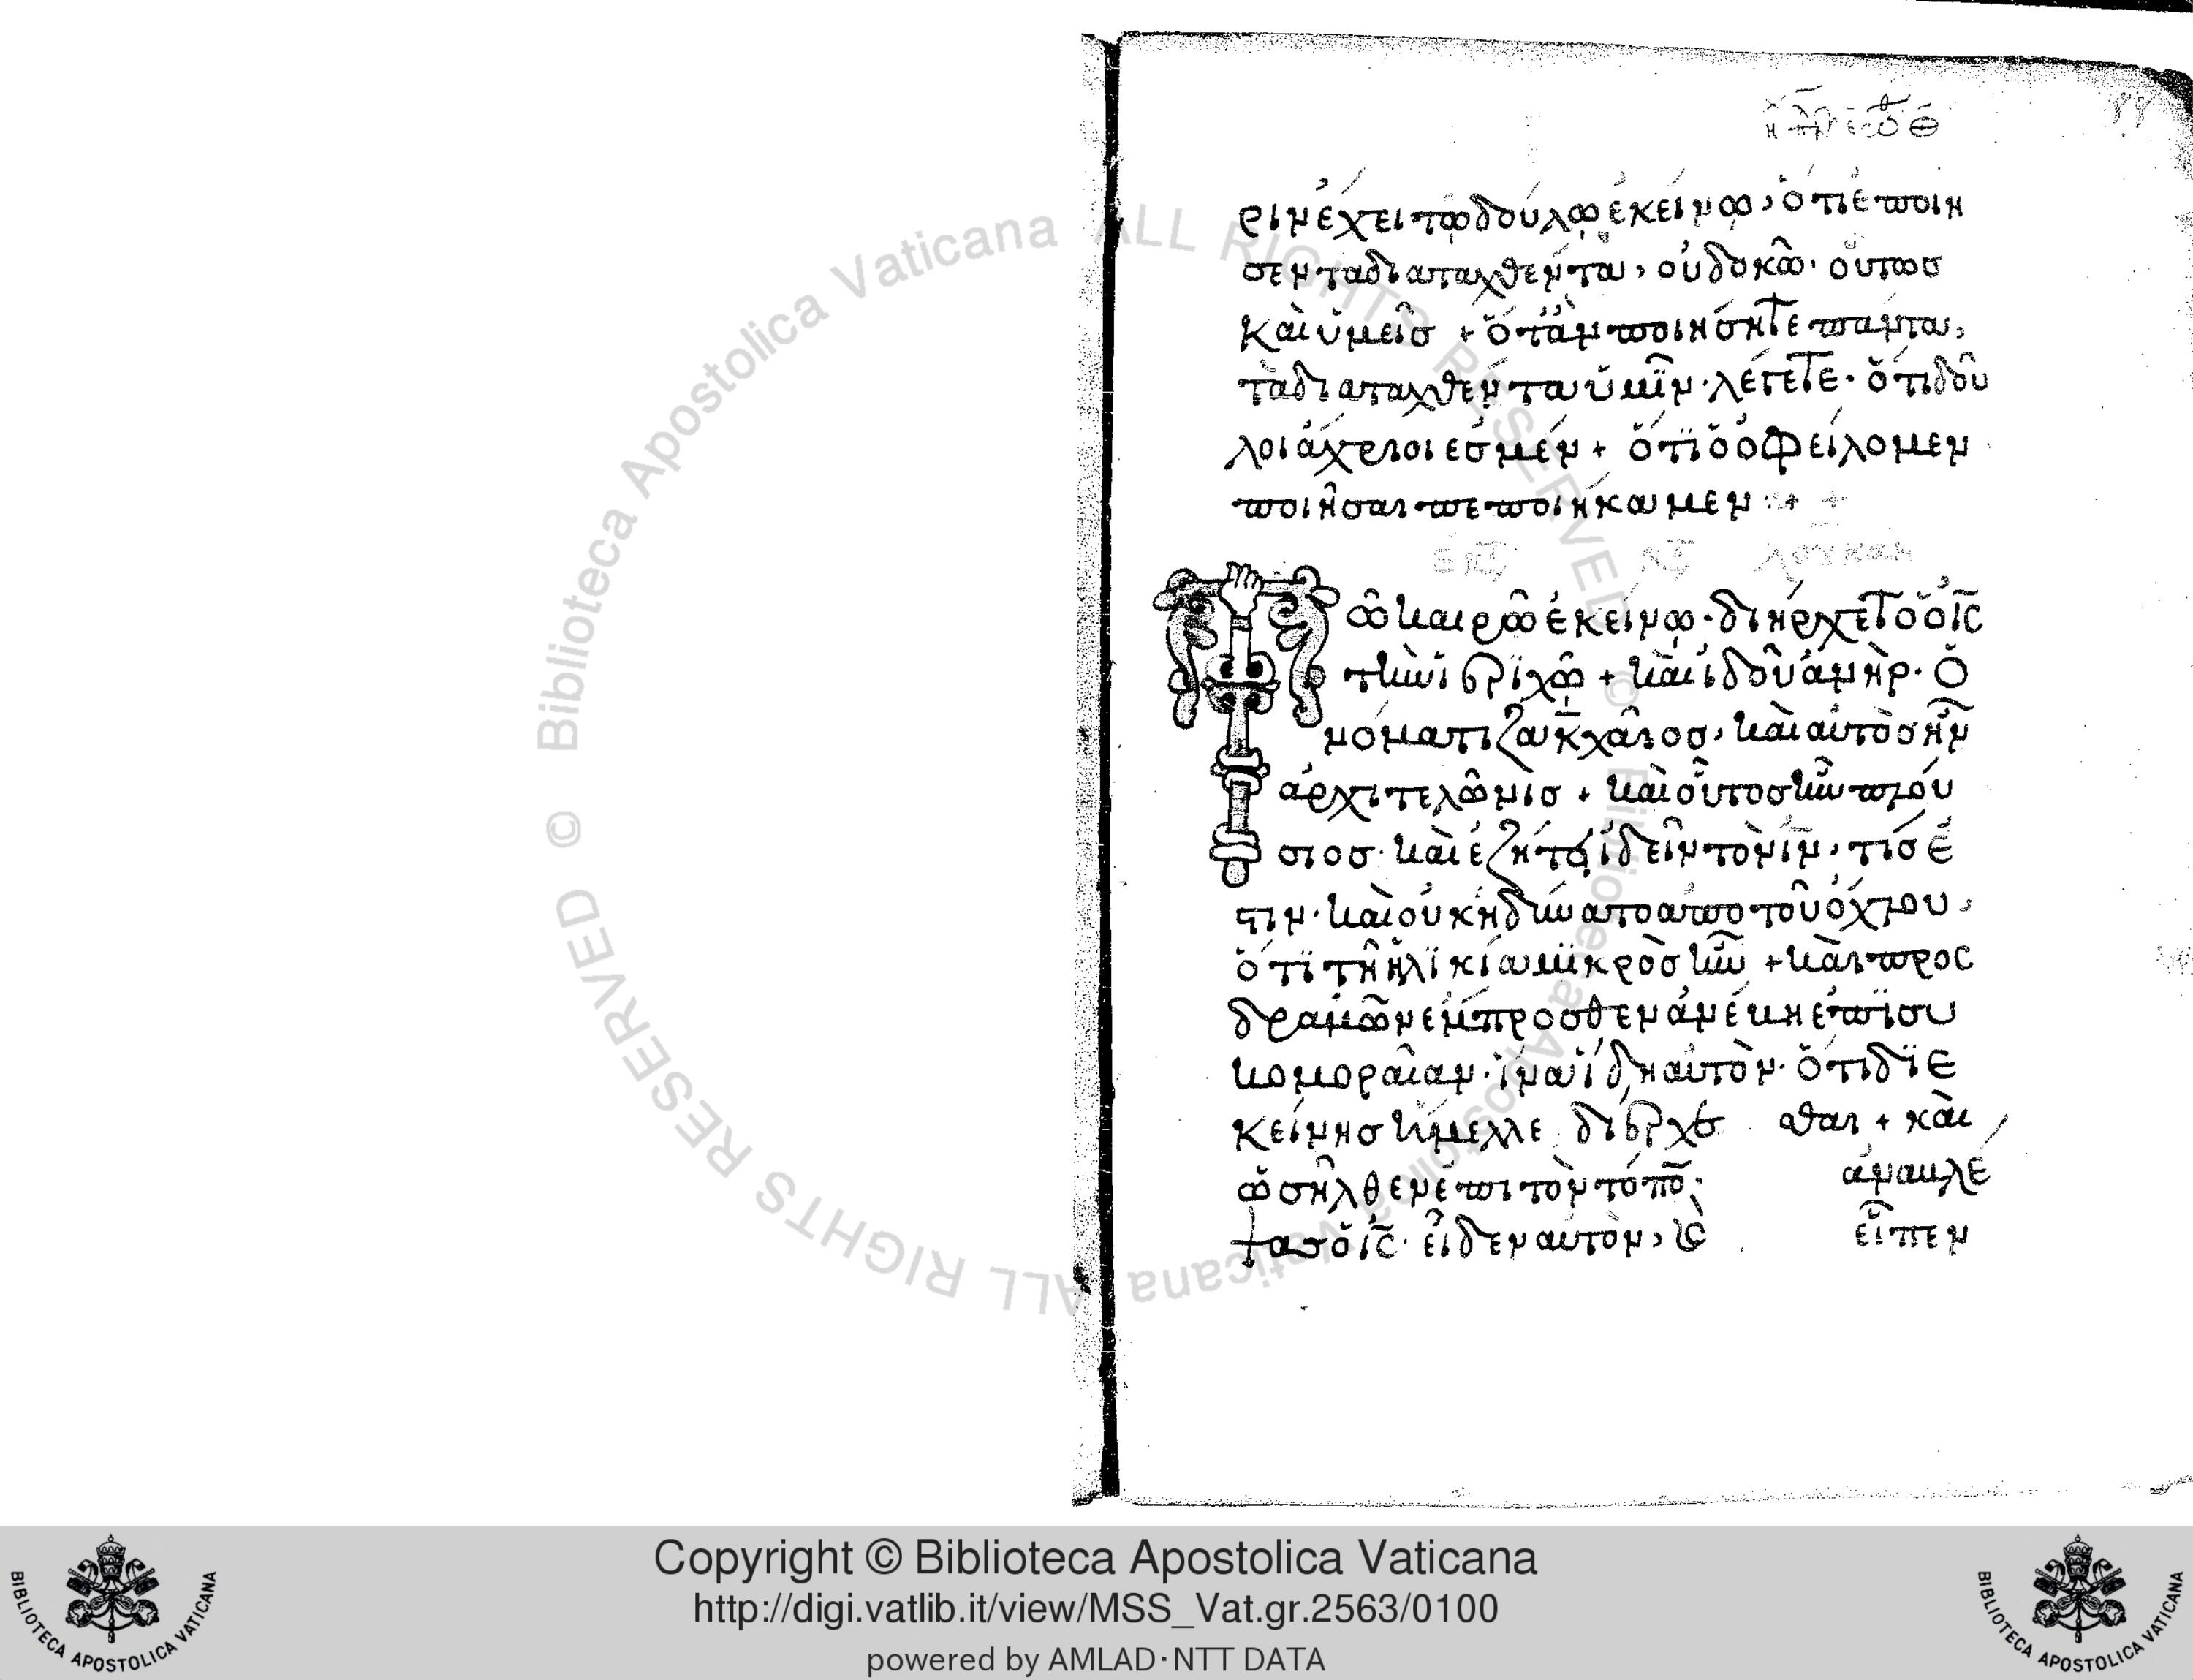 88
ριν ἔχει τῷ δούλῳ ἐκείνῳ, ὅτι ἐποίη
σεν τὰ διαταχθέντα, οὐ δοκῶ· οὕτως
καὶ ὑμεῖς + ὅταν ποιήσητε πάντα,
τὰ διαταχθέντα ὑμῖν· λέγετε· ὅτι δοῦ
λοι ἀχρεῖοι ἐσμέν + ὅτι ὃ ὀφείλομεν
ποιῆσαι πεποιήκαμεν
λουκᾶν
ῷ καιρῷ ἐκείνῳ· διήρχετο ὁ ἰς
τὴν ἰεριχῶ + καὶ ἰδοῦ ἀνὴρ· ὀ
νόματι ζακχαῖος, καὶ αὐτὸς ἦν
ἀρχιτελώνις + καὶ οὗτος ἦν πλού
σιος· καὶ ἐζήτει ἰδεῖν τὸν ἰν, τίς ἐ
στιν· καὶ οὐκ ἠδύνατο ἀπὸ τοῦ ὄχλου,
ὅτι τῇ ἡλικία μικρὸς ἦν + καὶ προς
δραμῶν ἔμπροσθεν ἀνέβη ἐπὶ συ
κομοραῖαν· ἵνα ἴδη αὐτὸν· ὅτι δι ἐ
κείνης ἤμελλε διέρχεσ θαι + καὶ
ὡς ἦλθεν ἐπὶ τὸν τόπο· ἀναβλέ
ψας ὁ ἰς· εἶδεν αὐτὸν, καὶ εἶπεν
© Biblioteca Apostolica Vaticana ALL RIGHTS RESERVED © Biblioteca Apostolica Vaticana ALL RIGHTS RESERVED
Copyright © Biblioteca Apostolica Vaticana
http://digi.vatlib.it/view/MSS_Vat.gr.2563/0100
powered by AMLAD·NTT DATA
BIBLIOTECA APOSTOLICA VATICANA
BIBLIOTECA APOSTOLICA VATICANA